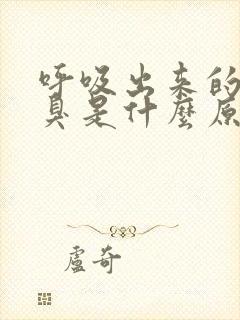 呼吸出来的
臭是什麼原
盧奇